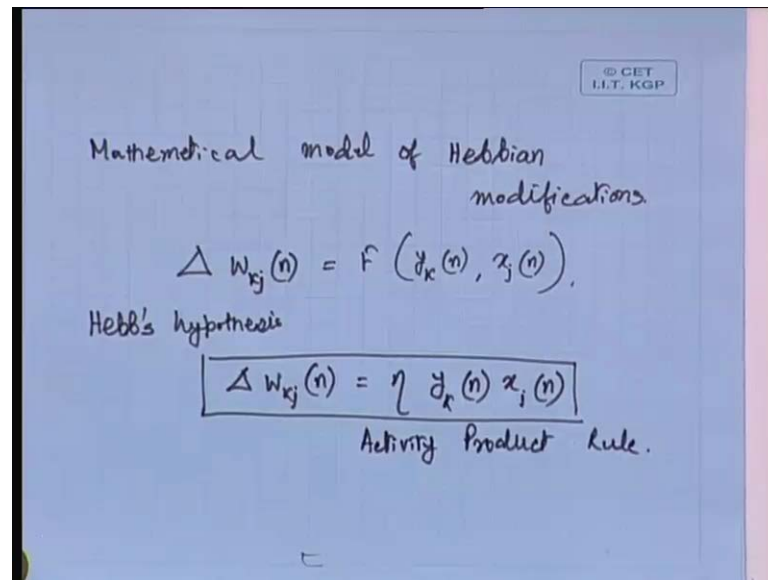 © CET
I.I.T. KGP
Mathemetical model of Hebbian
modifications.
Δ w_kj (n) = F (y_k (n), x_j (n)).
Hebb's hypothesis
Δ w_kj (n) = η y_k (n) x_j (n)
Activity Product Rule.